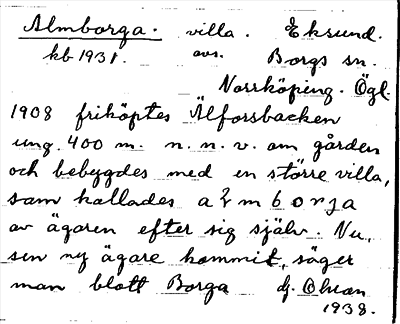 Almborga. villa. Eksund.
kb 1931. avs. Borgs sn.
Norrköping. Ögl.
1908 friköptes Älforsbacken
ung. 400 m. n. n. v. om gården
och bebygdes med en större villa,
som kallades almborja
av ägaren efter sig själv. Nu,
sen ny ägare kommit, säger
man blott Borga dj. Ohman
1938.